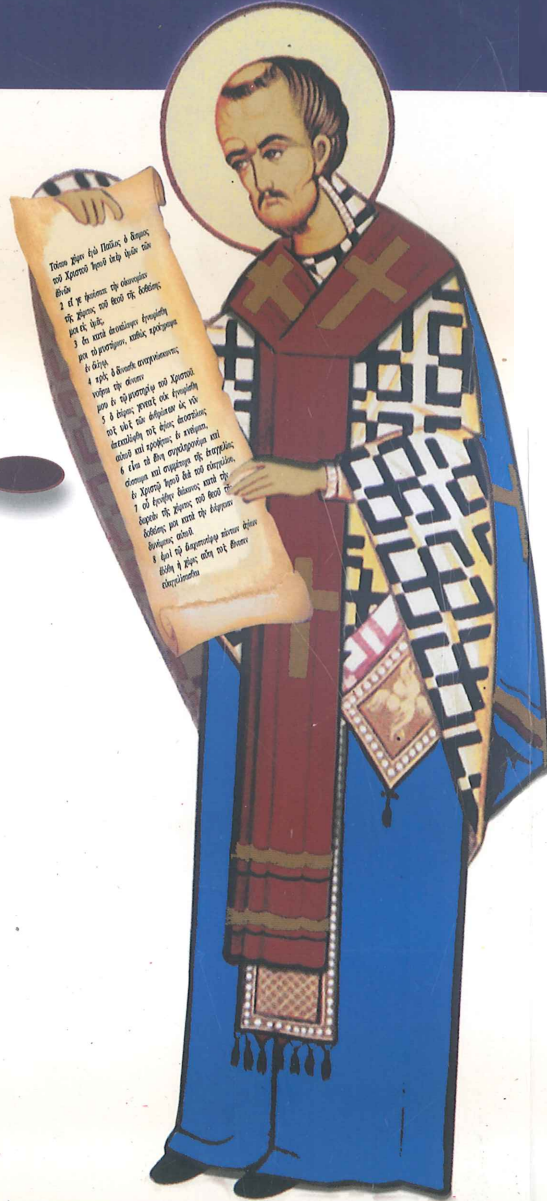 Τούτου χάριν ἐγὼ Παῦλος ὁ δέσμιος
τοῦ Χριστοῦ Ἰησοῦ ὑπὲρ ὑμῶν τῶν
ἐθνῶν
2 εἴ γε ἠκούσατε τὴν οἰκονομίαν
τῆς χάριτος τοῦ θεοῦ τῆς δοθείσης
μοι εἰς ὑμᾶς,
3 ὅτι κατὰ ἀποκάλυψιν ἐγνωρίσθη
μοι τὸ μυστήριον, καθὼς προέγραψα
ἐν ὀλίγῳ,
4 πρὸς ὃ δύνασθε ἀναγινώσκοντες
νοῆσαι τὴν σύνεσιν
μου ἐν τῷ μυστηρίῳ τοῦ Χριστοῦ
5 ὃ ἑτέραις γενεαῖς οὐκ ἐγνωρίσθη
τοῖς υἱοῖς τῶν ἀνθρώπων ὡς νῦν
ἀπεκαλύφθη τοῖς ἁγίοις ἀποστόλοις
αὐτοῦ καὶ προφήταις ἐν πνεύματι,
6 εἶναι τὰ ἔθνη συγκληρονόμα καὶ
σύσσωμα καὶ συμμέτοχα τῆς ἐπαγγελίας
ἐν Χριστῷ Ἰησοῦ διὰ τοῦ εὐαγγελίου,
7 οὗ ἐγενήθην διάκονος κατὰ τὴν
δωρεὰν τῆς χάριτος τοῦ θεοῦ τῆς
δοθείσης μοι κατὰ τὴν ἐνέργειαν
δυνάμεως αὐτοῦ.
8 ἐμοὶ τῷ ἐλαχιστοτέρῳ πάντων ἁγίων
ἐδόθη ἡ χάρις αὕτη τοῖς ἔθνεσιν
εὐαγγελίσασθαι